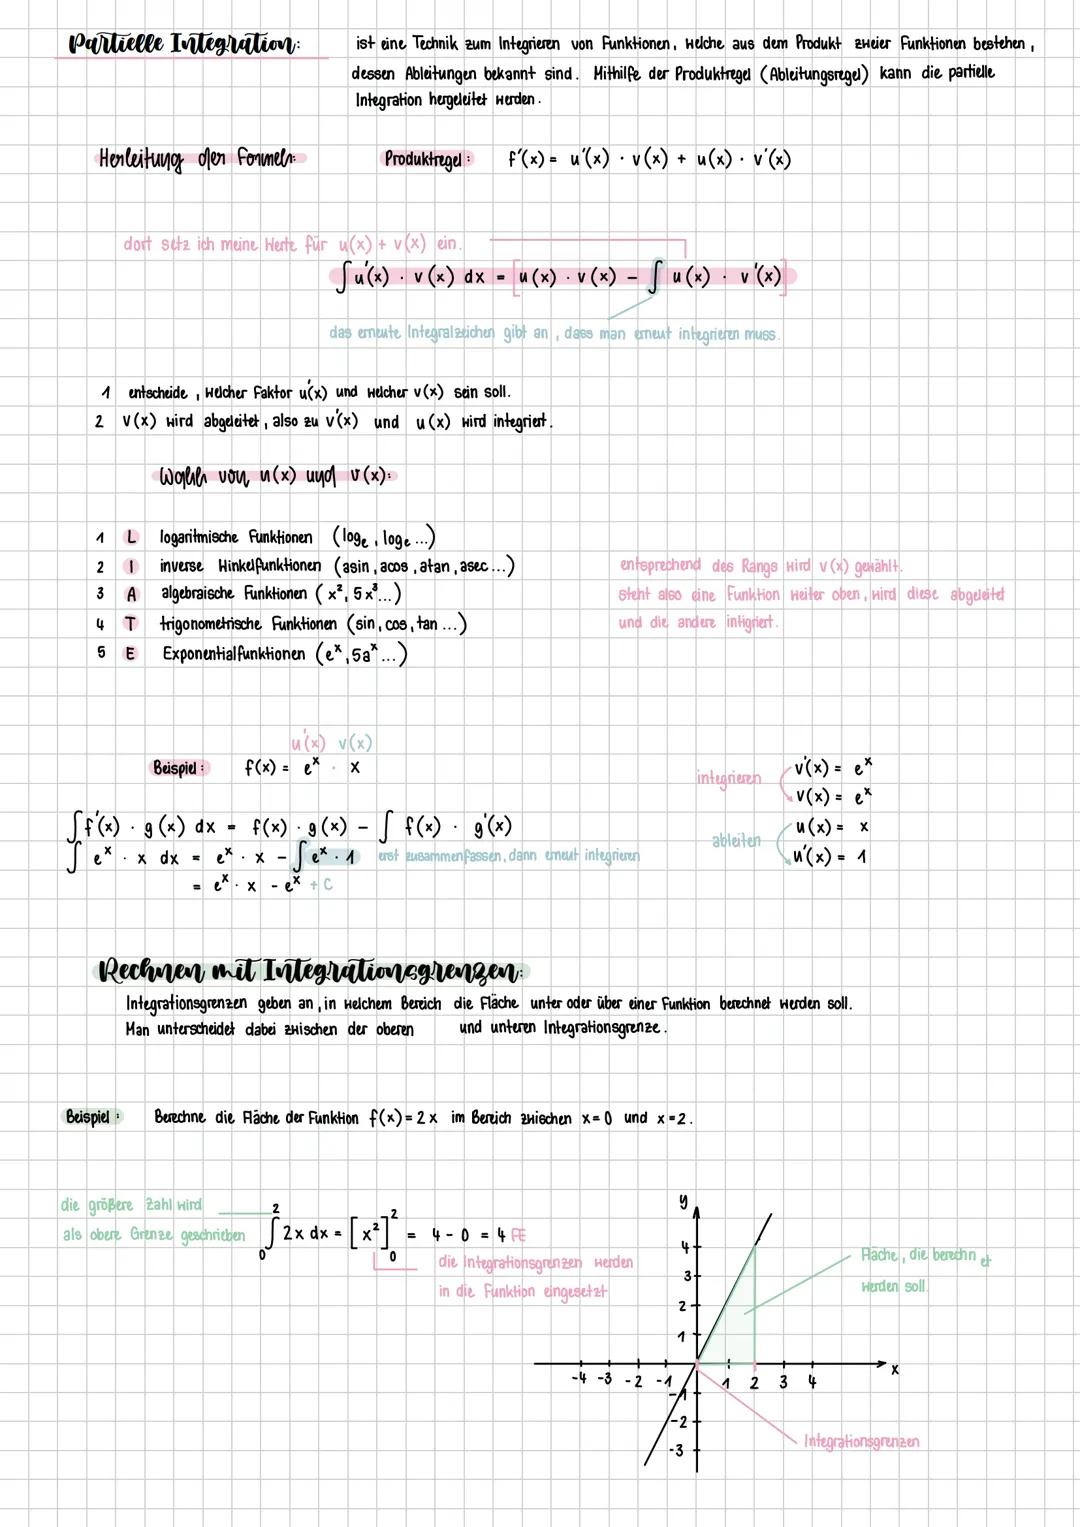 Partielle Integration: ist eine Technik zum Integrieren von Funktionen, welche aus dem Produkt zweier Funktionen bestehen,
dessen Ableitungen bekannt sind. Mithilfe der Produktregel (Ableitungsregel) kann die partielle
Integration hergeleitet werden.
Herleitung der Formel: Produktregel: f'(x) = u'(x) · v(x) + u(x) · v'(x)
dort setz ich meine Werte für u(x) + v(x) ein.
∫u'(x) · v(x) dx = [u(x) · v(x) - ∫ u(x) · v'(x)]
das erneute Integralzeichen gibt an, dass man erneut integrieren muss.
1 entscheide, welcher Faktor u'(x) und welcher v(x) sein soll.
2 v(x) wird abgeleitet, also zu v'(x) und u(x) wird integriert.
Wahl von u(x) und v(x):
1 L logaritmische Funktionen (logₑ, logₑ ...)
2 I inverse Winkelfunktionen (asin, acos, atan, asec...)
entsprechend des Rangs wird v(x) gewählt.
3 A algebraische Funktionen (x², 5x³...)
steht also eine Funktion weiter oben, wird diese abgeleitet
4 T trigonometrische Funktionen (sin, cos, tan ...)
und die andere intigriert.
5 E Exponentialfunktionen (eˣ, 5aˣ ...)
u'(x) v(x)
Beispiel: f(x) = eˣ · x
integrieren v'(x) = eˣ
v(x) = eˣ
∫f'(x) · g(x) dx = f(x) · g(x) - ∫ f(x) · g'(x)
ableiten u(x) = x
u'(x) = 1
∫ eˣ · x dx = eˣ · x - ∫eˣ · 1 erst zusammenfassen, dann erneut integrieren
= eˣ · x - eˣ + C
Rechnen mit Integrationsgrenzen:
Integrationsgrenzen geben an, in welchem Bereich die Fläche unter oder über einer Funktion berechnet werden soll.
Man unterscheidet dabei zwischen der oberen und unteren Integrationsgrenze.
Beispiel: Berechne die Fläche der Funktion f(x) = 2x im Bereich zwischen x=0 und x=2.
die größere Zahl wird
als obere Grenze geschrieben
∫₀² 2x dx = [x²]₀² = 4 - 0 = 4 FE
die Integrationsgrenzen werden
in die Funktion eingesetzt
y
4
3
2
1
-4 -3 -2 -1 1 2 3 4 x
-1
-2
-3
Fläche, die berechnet
werden soll.
Integrationsgrenzen